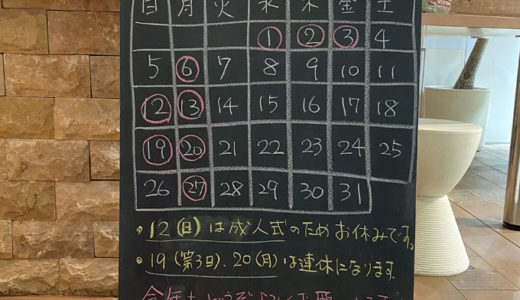 日 月 火 水 木 金 土
① ② ③ 4
5 ⑥ 7 8 9 10 11
⑫ ⑬ 14 15 16 17 18
⑲ ⑳ 21 22 23 24 25
26 ㉗ 28 29 30 31
・12(日)は成人式のためお休みです。
・19(第3日)、20(月)は連休になります。